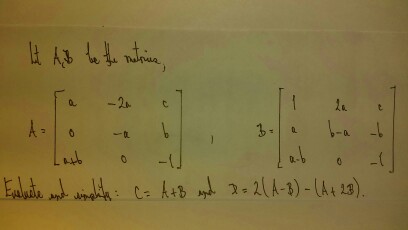 Let A, B be the matrices,
A = [ a -2a c ; 0 -a b ; a+b 0 -1 ] , B = [ 1 2a c ; a b-a -b ; a-b 0 -1 ]
Evaluate and simplify: C = A+B and D = 2(A-B) - (A+2B).